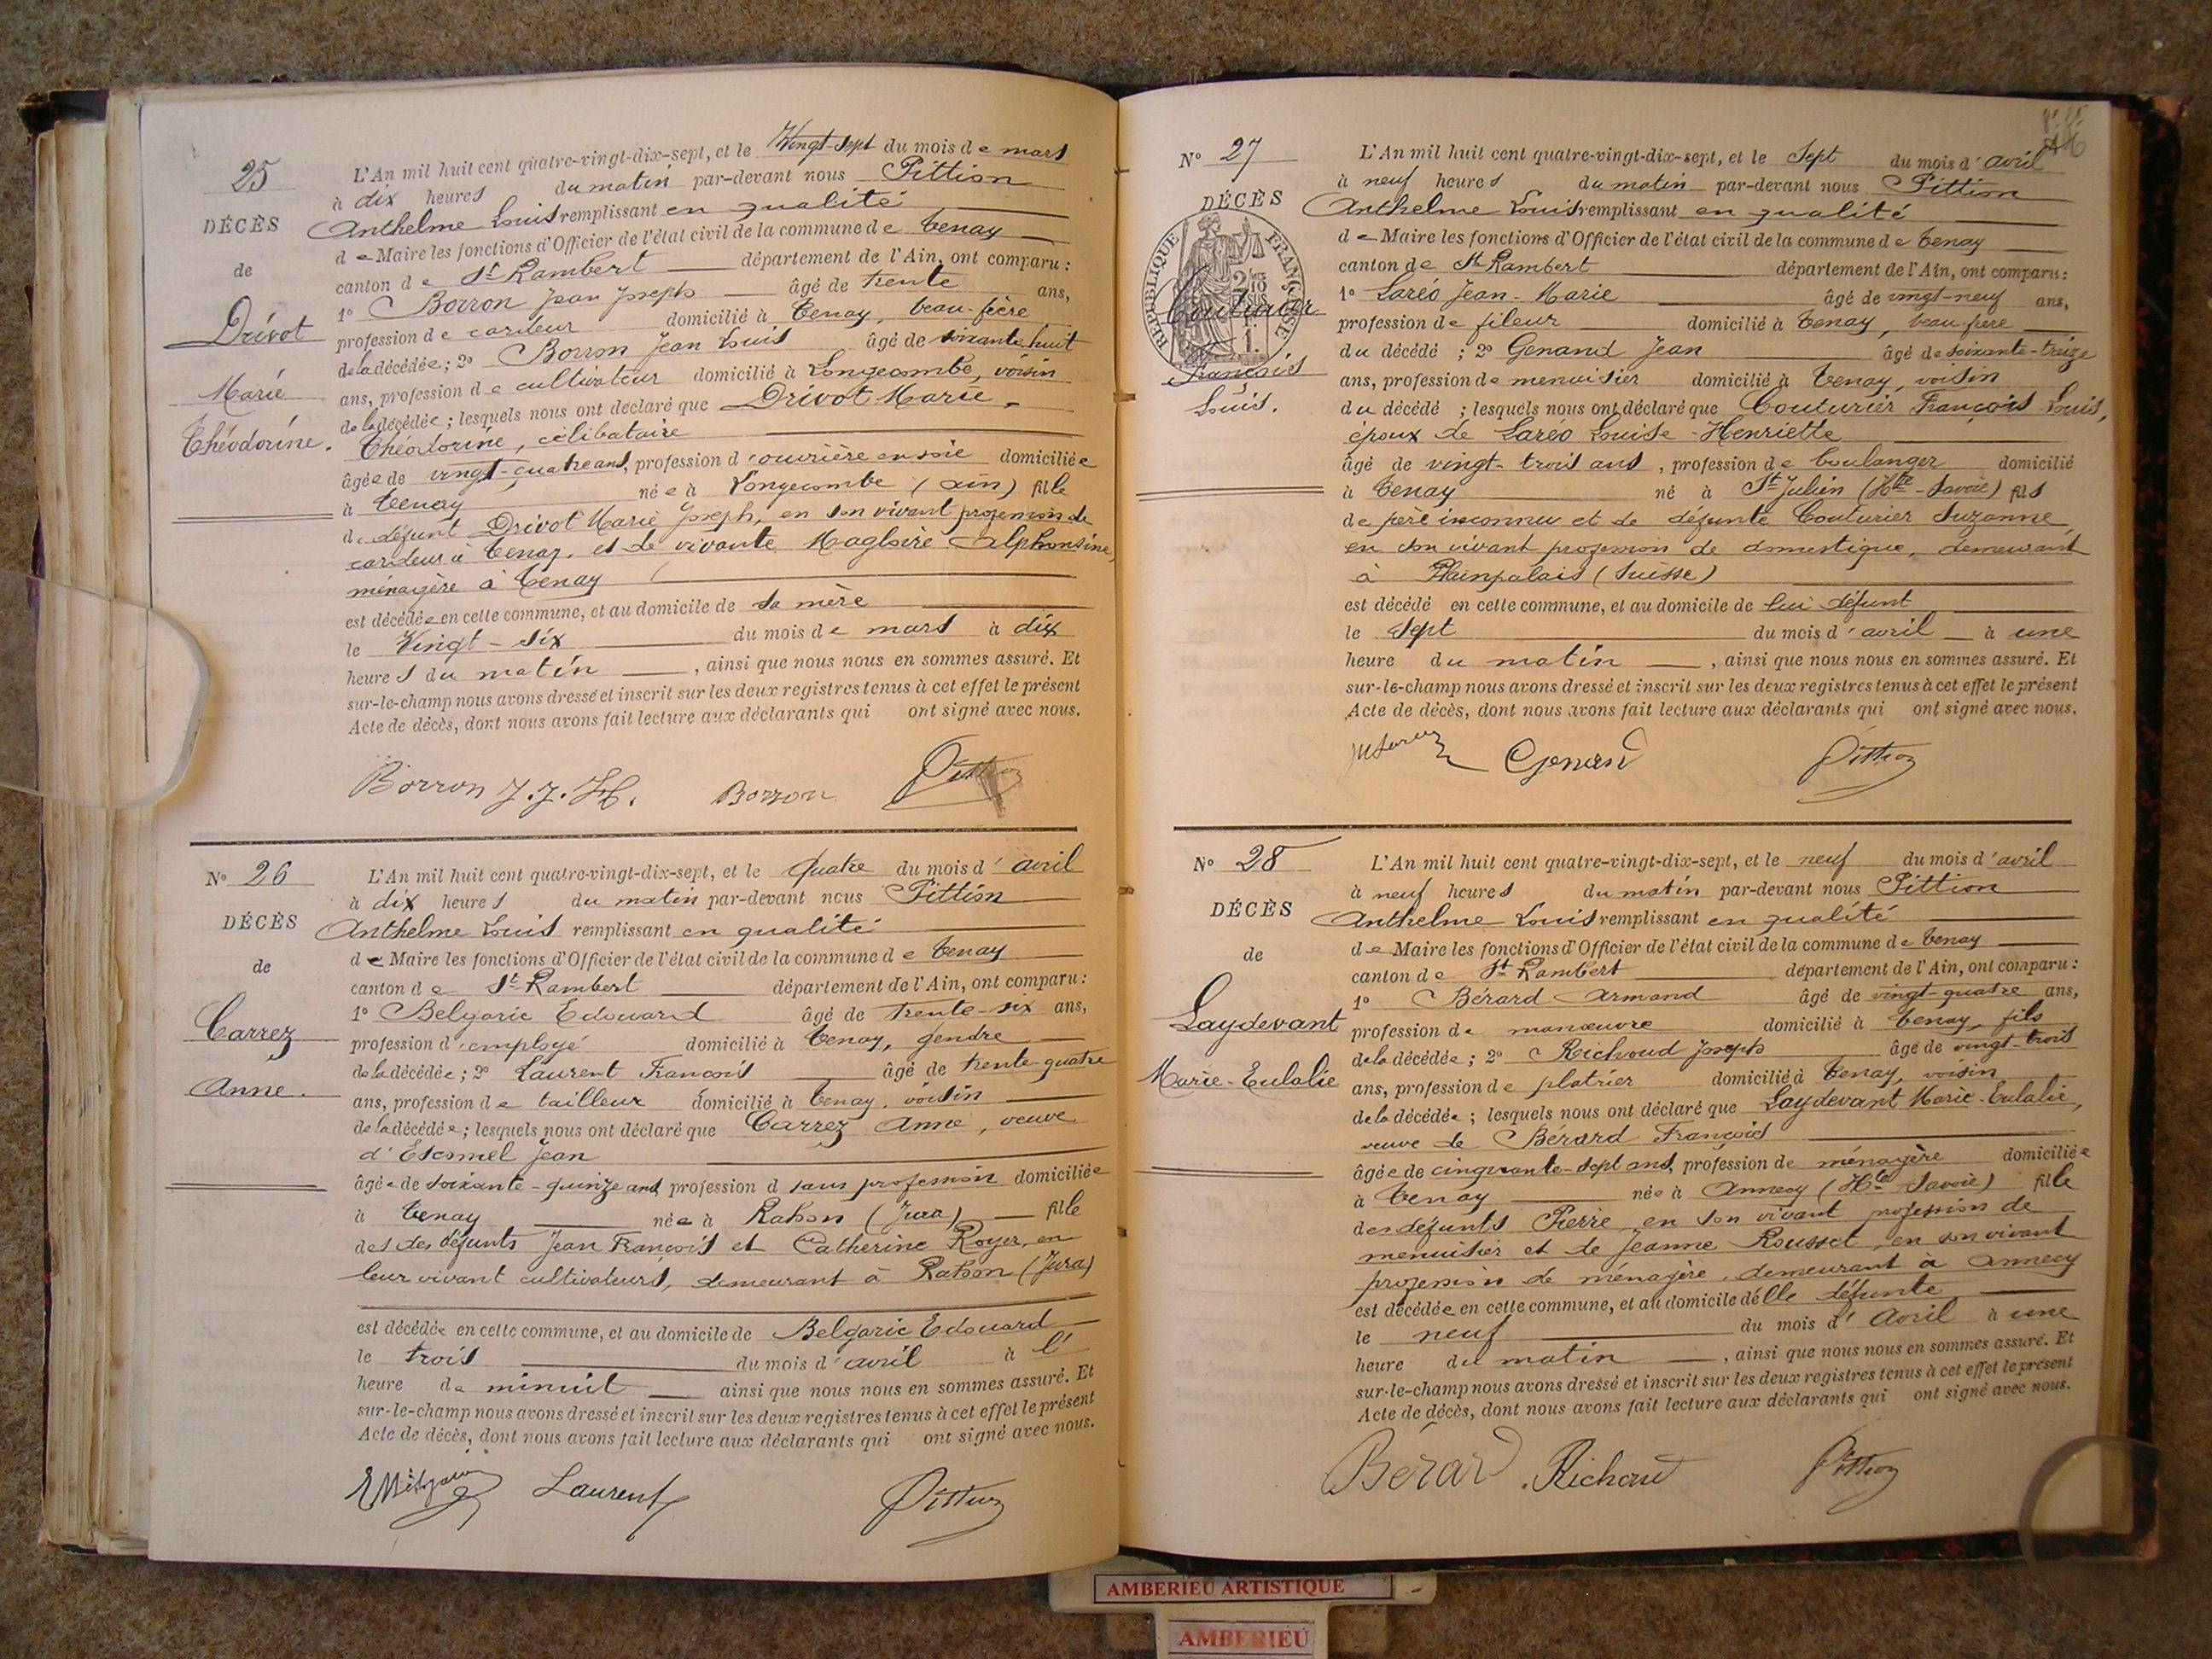 25
DÉCÈS
de
Drivot
Marie
Théodorine.
L'An mil huit cent quatre-vingt-dix-sept, et le Vingt-sept du mois de mars
à dix heures du matin par-devant nous Pittion
Anthelme Louis remplissant en qualité
de Maire les fonctions d'Officier de l'état civil de la commune de Tenay
canton de St Rambert département de l'Ain, ont comparu :
1° Borron Jean Joseph âgé de trente ans,
profession de cardeur domicilié à Tenay, beau-frère
de la décédée ; 2° Borron Jean Louis âgé de soixante-huit
ans, profession de cultivateur domicilié à Longecombe, voisin
de la décédée ; lesquels nous ont déclaré que Drivot Marie-
Théodorine, célibataire
âgée de vingt-quatre ans, profession d'ouvrière en soie domiciliée
à Tenay née à Longecombe (Ain) fille
de défunt Drivot Marie Joseph, en son vivant profession de
cardeur à Tenay, et de vivante Magloire Alphonsine,
ménagère à Tenay
est décédée en cette commune, et au domicile de sa mère
le Vingt-six du mois de mars à dix
heures du matin, ainsi que nous nous en sommes assuré. Et
sur-le-champ nous avons dressé et inscrit sur les deux registres tenus à cet effet le présent
Acte de décès, dont nous avons fait lecture aux déclarants qui ont signé avec nous.
Borron J. J. Borron Pittion
N° 26
DÉCÈS
de
Carrez
Anne.
L'An mil huit cent quatre-vingt-dix-sept, et le quatre du mois d'avril
à dix heures du matin par-devant nous Pittion
Anthelme Louis remplissant en qualité
de Maire les fonctions d'Officier de l'état civil de la commune de Tenay
canton de St Rambert département de l'Ain, ont comparu :
1° Belgaric Edouard âgé de trente-six ans,
profession d'employé domicilié à Tenay, gendre
de la décédée ; 2° Laurent François âgé de trente-quatre
ans, profession de tailleur domicilié à Tenay, voisin
de la décédée ; lesquels nous ont déclaré que Carrez Anne, veuve
d'Escomel Jean
âgée de soixante-quinze ans, profession d sans profession domiciliée
à Tenay née à Rahon (Jura) fille
des des défunts Jean François et Catherine Royer, en
leur vivant cultivateurs, demeurant à Rahon (Jura)
est décédée en cette commune, et au domicile de Belgaric Edouard
le trois du mois d'avril à l'
heure de minuit ainsi que nous nous en sommes assuré. Et
sur-le-champ nous avons dressé et inscrit sur les deux registres tenus à cet effet le présent
Acte de décès, dont nous avons fait lecture aux déclarants qui ont signé avec nous.
Laurent Pittion
N° 27
DÉCÈS
RÉPUBLIQUE FRANÇAISE
Couturier
François
Louis.
L'An mil huit cent quatre-vingt-dix-sept, et le sept du mois d'avril
à neuf heures du matin par-devant nous Pittion
Anthelme Louis remplissant en qualité
de Maire les fonctions d'Officier de l'état civil de la commune de Tenay
canton de St Rambert département de l'Ain, ont comparu :
1° Saréo Jean-Marie âgé de vingt-neuf ans,
profession de fileur domicilié à Tenay, beau frère
du décédé ; 2° Genand Jean âgé de soixante-treize
ans, profession de menuisier domicilié à Tenay, voisin
du décédé ; lesquels nous ont déclaré que Couturier François-Louis,
époux de Saréo Louise-Henriette
âgé de vingt-trois ans, profession de boulanger domicilié
à Tenay né à St Julien (Hte-Savoie) fils
de père inconnu et de défunte Couturier Suzanne,
en son vivant profession de domestique, demeurant
à Plainpalais (Suisse)
est décédé en cette commune, et au domicile de lui défunt
le Sept du mois d'avril à une
heure du matin, ainsi que nous nous en sommes assuré. Et
sur-le-champ nous avons dressé et inscrit sur les deux registres tenus à cet effet le présent
Acte de décès, dont nous avons fait lecture aux déclarants qui ont signé avec nous.
Genand Pittion
N° 28
DÉCÈS
de
Laydevant
Marie-Eulalie
L'An mil huit cent quatre-vingt-dix-sept, et le neuf du mois d'avril
à neuf heures du matin par-devant nous Pittion
Anthelme Louis remplissant en qualité
de Maire les fonctions d'Officier de l'état civil de la commune de Tenay
canton de St Rambert département de l'Ain, ont comparu :
1° Bérard Armand âgé de vingt-quatre ans,
profession de manœuvre domicilié à Tenay, fils
de la décédée ; 2° Richoud Joseph âgé de vingt-trois
ans, profession de platrier domicilié à Tenay, voisin
de la décédée ; lesquels nous ont déclaré que Laydevant Marie-Eulalie,
veuve de Bérard François
âgée de cinquante-sept ans, profession de ménagère domiciliée
à Tenay née à Annecy (Hte Savoie) fille
des défunts Pierre, en son vivant profession de
menuisier et de Jeanne Rousset, en son vivant
profession de ménagère, demeurant à Annecy
est décédée en cette commune, et au domicile d'elle défunte
le neuf du mois d'Avril à une
heure du matin, ainsi que nous nous en sommes assuré. Et
sur-le-champ nous avons dressé et inscrit sur les deux registres tenus à cet effet le présent
Acte de décès, dont nous avons fait lecture aux déclarants qui ont signé avec nous.
Bérard Richoud Pittion
AMBERIEU ARTISTIQUE
AMBERIEU